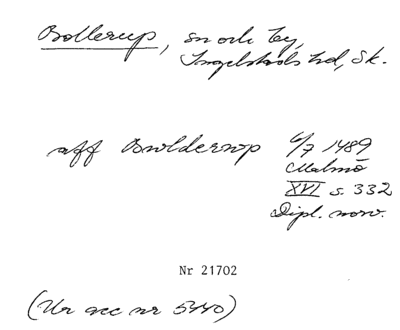 Bollerup, sn och by,
Ingelstads hd, Sk.
aff Bwlderwp 6/7 1489
Malmö
XVI s. 332
Dipl. norv.
Nr 21702
(Ur acc nr 5440)